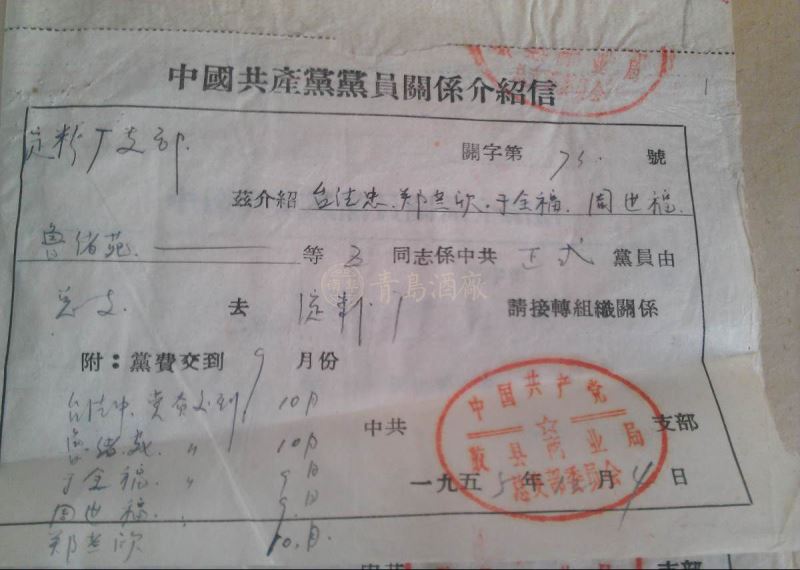 中國共產黨黨員關係介紹信
淀粉厂支部
關字第 號
茲介紹 台法忠.郑 欣.于全福.周世福.
鲁绪苑. 等 5 同志係中共 正式 黨員由
总支 去 淀粉厂 請接轉組織關係
附：黨費交到 9 月份
台法忠 党费交到 10月
鲁绪苑 〃 10月
于全福 〃 9月
周世福 〃 9月
郑 欣 10月
中共 支部
一九五5年 月4日
中国共产党
县商业局
总支部委员会
青島酒廠
1